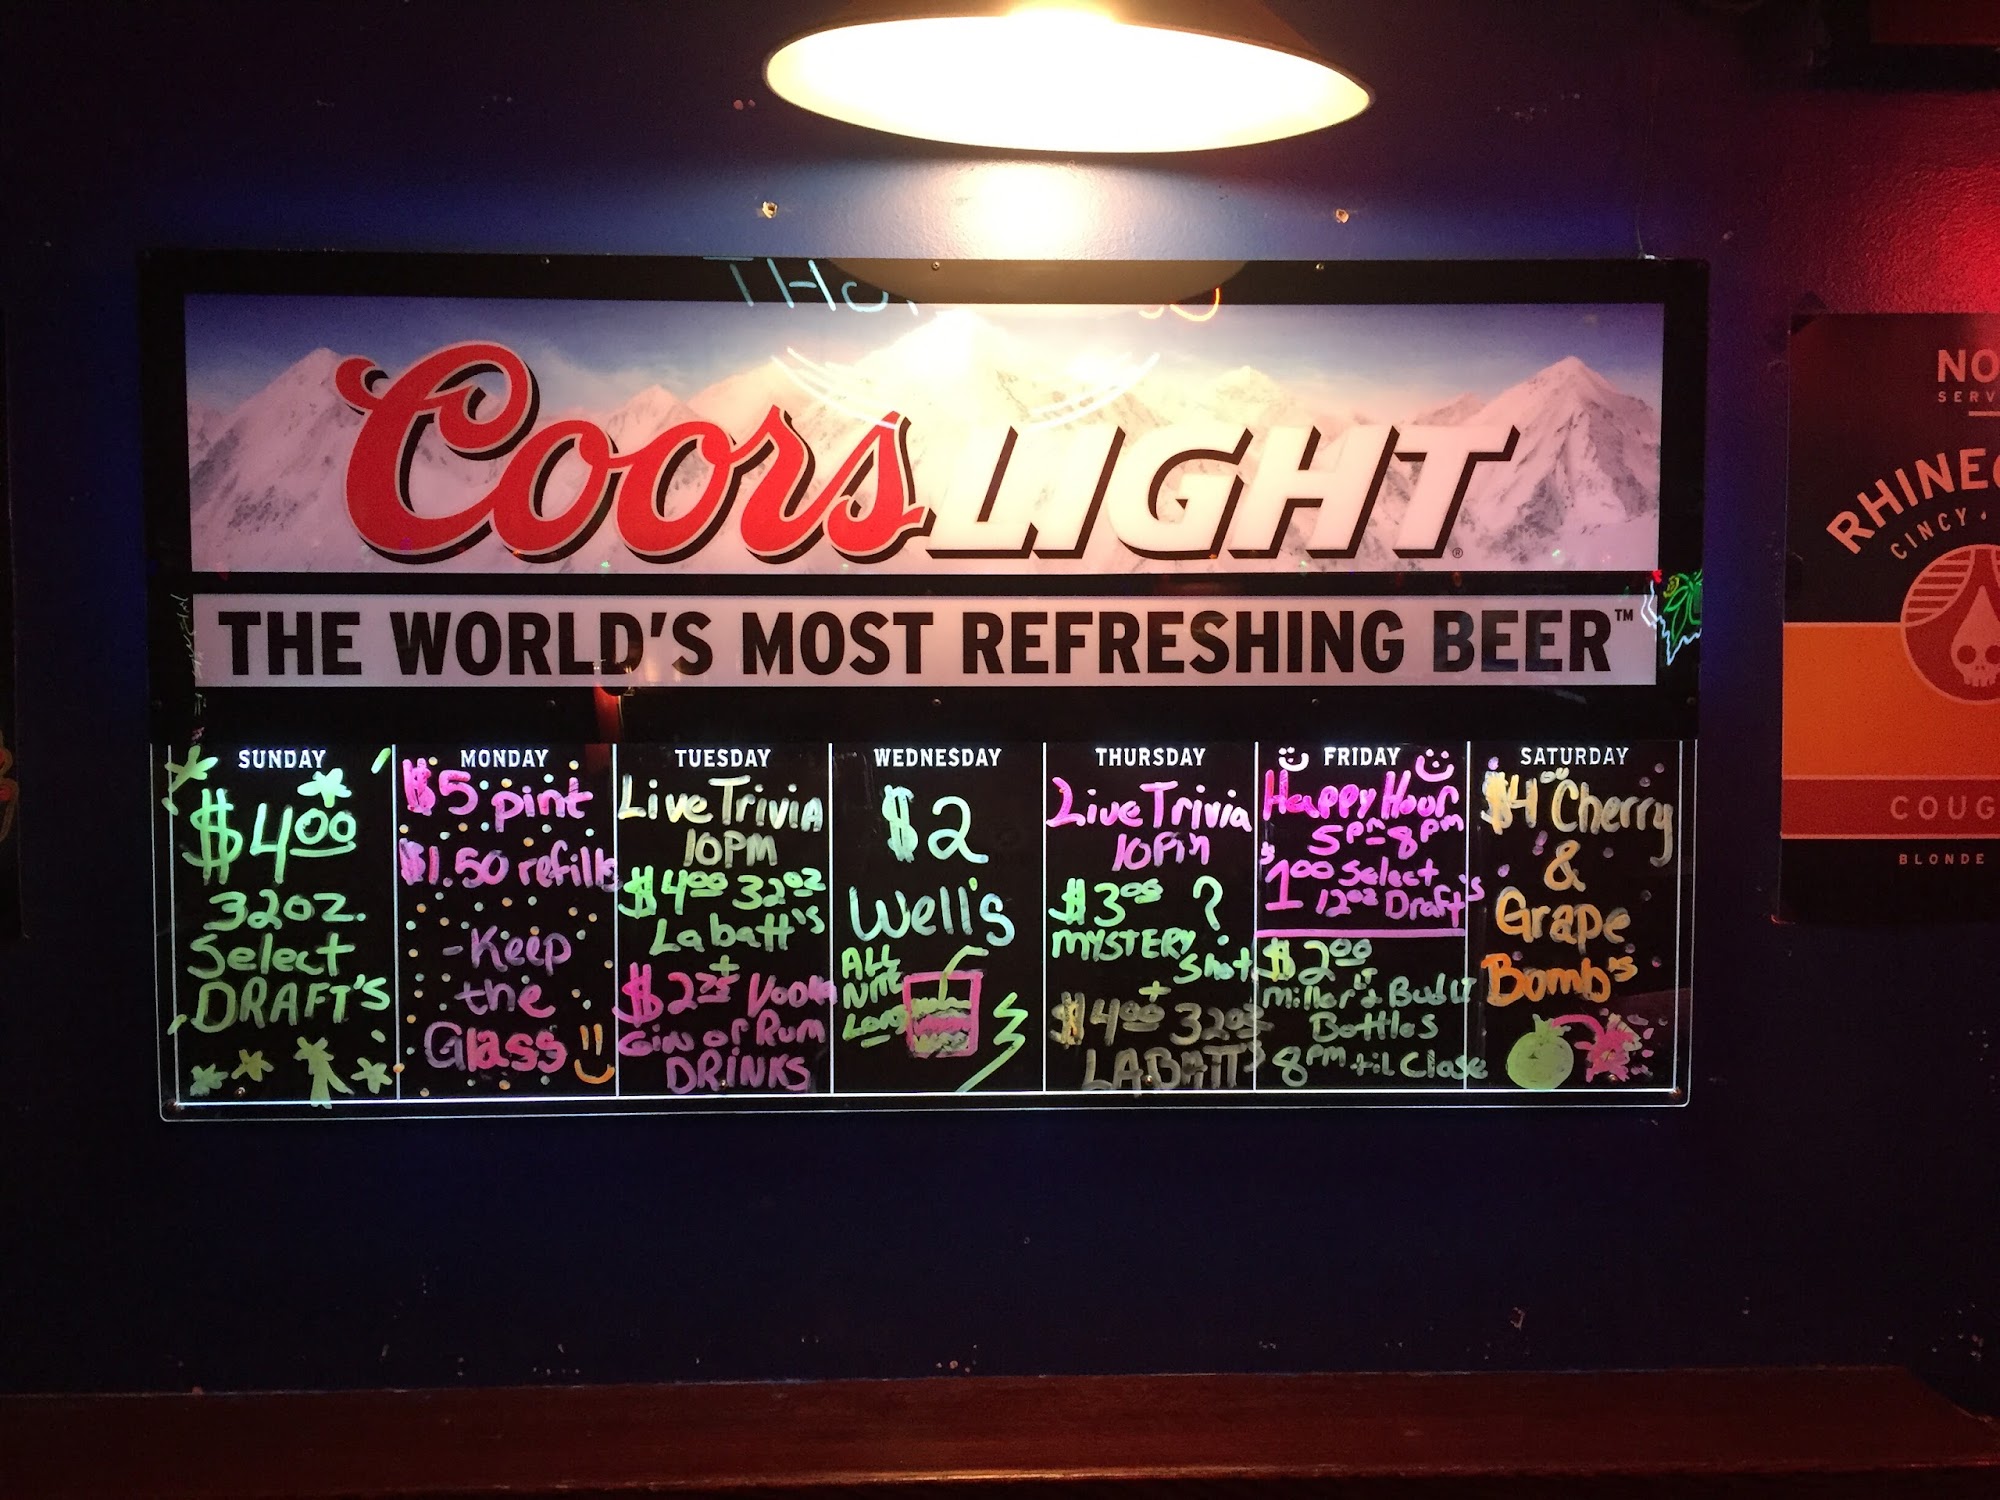 Coors LIGHT®
THE WORLD'S MOST REFRESHING BEER™
SUNDAY
$4.00
32oz.
Select
DRAFT'S
MONDAY
$5 pint
$1.50 refills
-Keep
the
Glass
TUESDAY
Live Trivia
10PM
$4.00 32oz
Labatt's
+
$2.75 Vodka
Gin or Rum
DRINKS
WEDNESDAY
$2
Well's
ALL
NITE
LONG
THURSDAY
Live Trivia
10Pm
$3.00 ?
MYSTERY
Shot
+
$4.00 32oz
LABATT'S
FRIDAY
Happy Hour
5pm-8pm
$1.00 Select
12oz Draft's
$2.00
Miller Lt & Bud Lt
Bottles
8pm til Close
SATURDAY
$4.00 Cherry
&
Grape
Bomb's
NO
SERV
RHINEG
CINCY
COUG
BLONDE